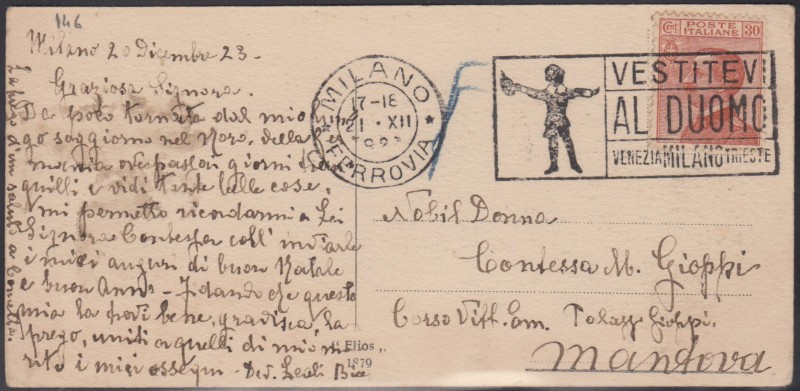 146
Milano 20 Dicembre 23.
Graziosa Signora.
Da poco tornata dal mio
go saggiorno nel della
ove passai giorni tra
quilli e vidi tante belle cose,
mi permetto ricordarmi a Lei
Signora Contessa coll' inviarle
i miei auguri di buon Natale
e buon Anno
mia la trovi bene, gradisca, la
prego, uniti a quelli di mio ma
rito i miei ossequi
MILANO
17-18
21 XII
FERROVIA
VESTITEVI
AL DUOMO
VENEZIA MILANO TRIESTE
Cent POSTE 30
ITALIANE
Nobil Donna
Contessa M. Gioppi
Corso Vitt. Em. Palazz Gioppi.
Mantova
Elios
1879